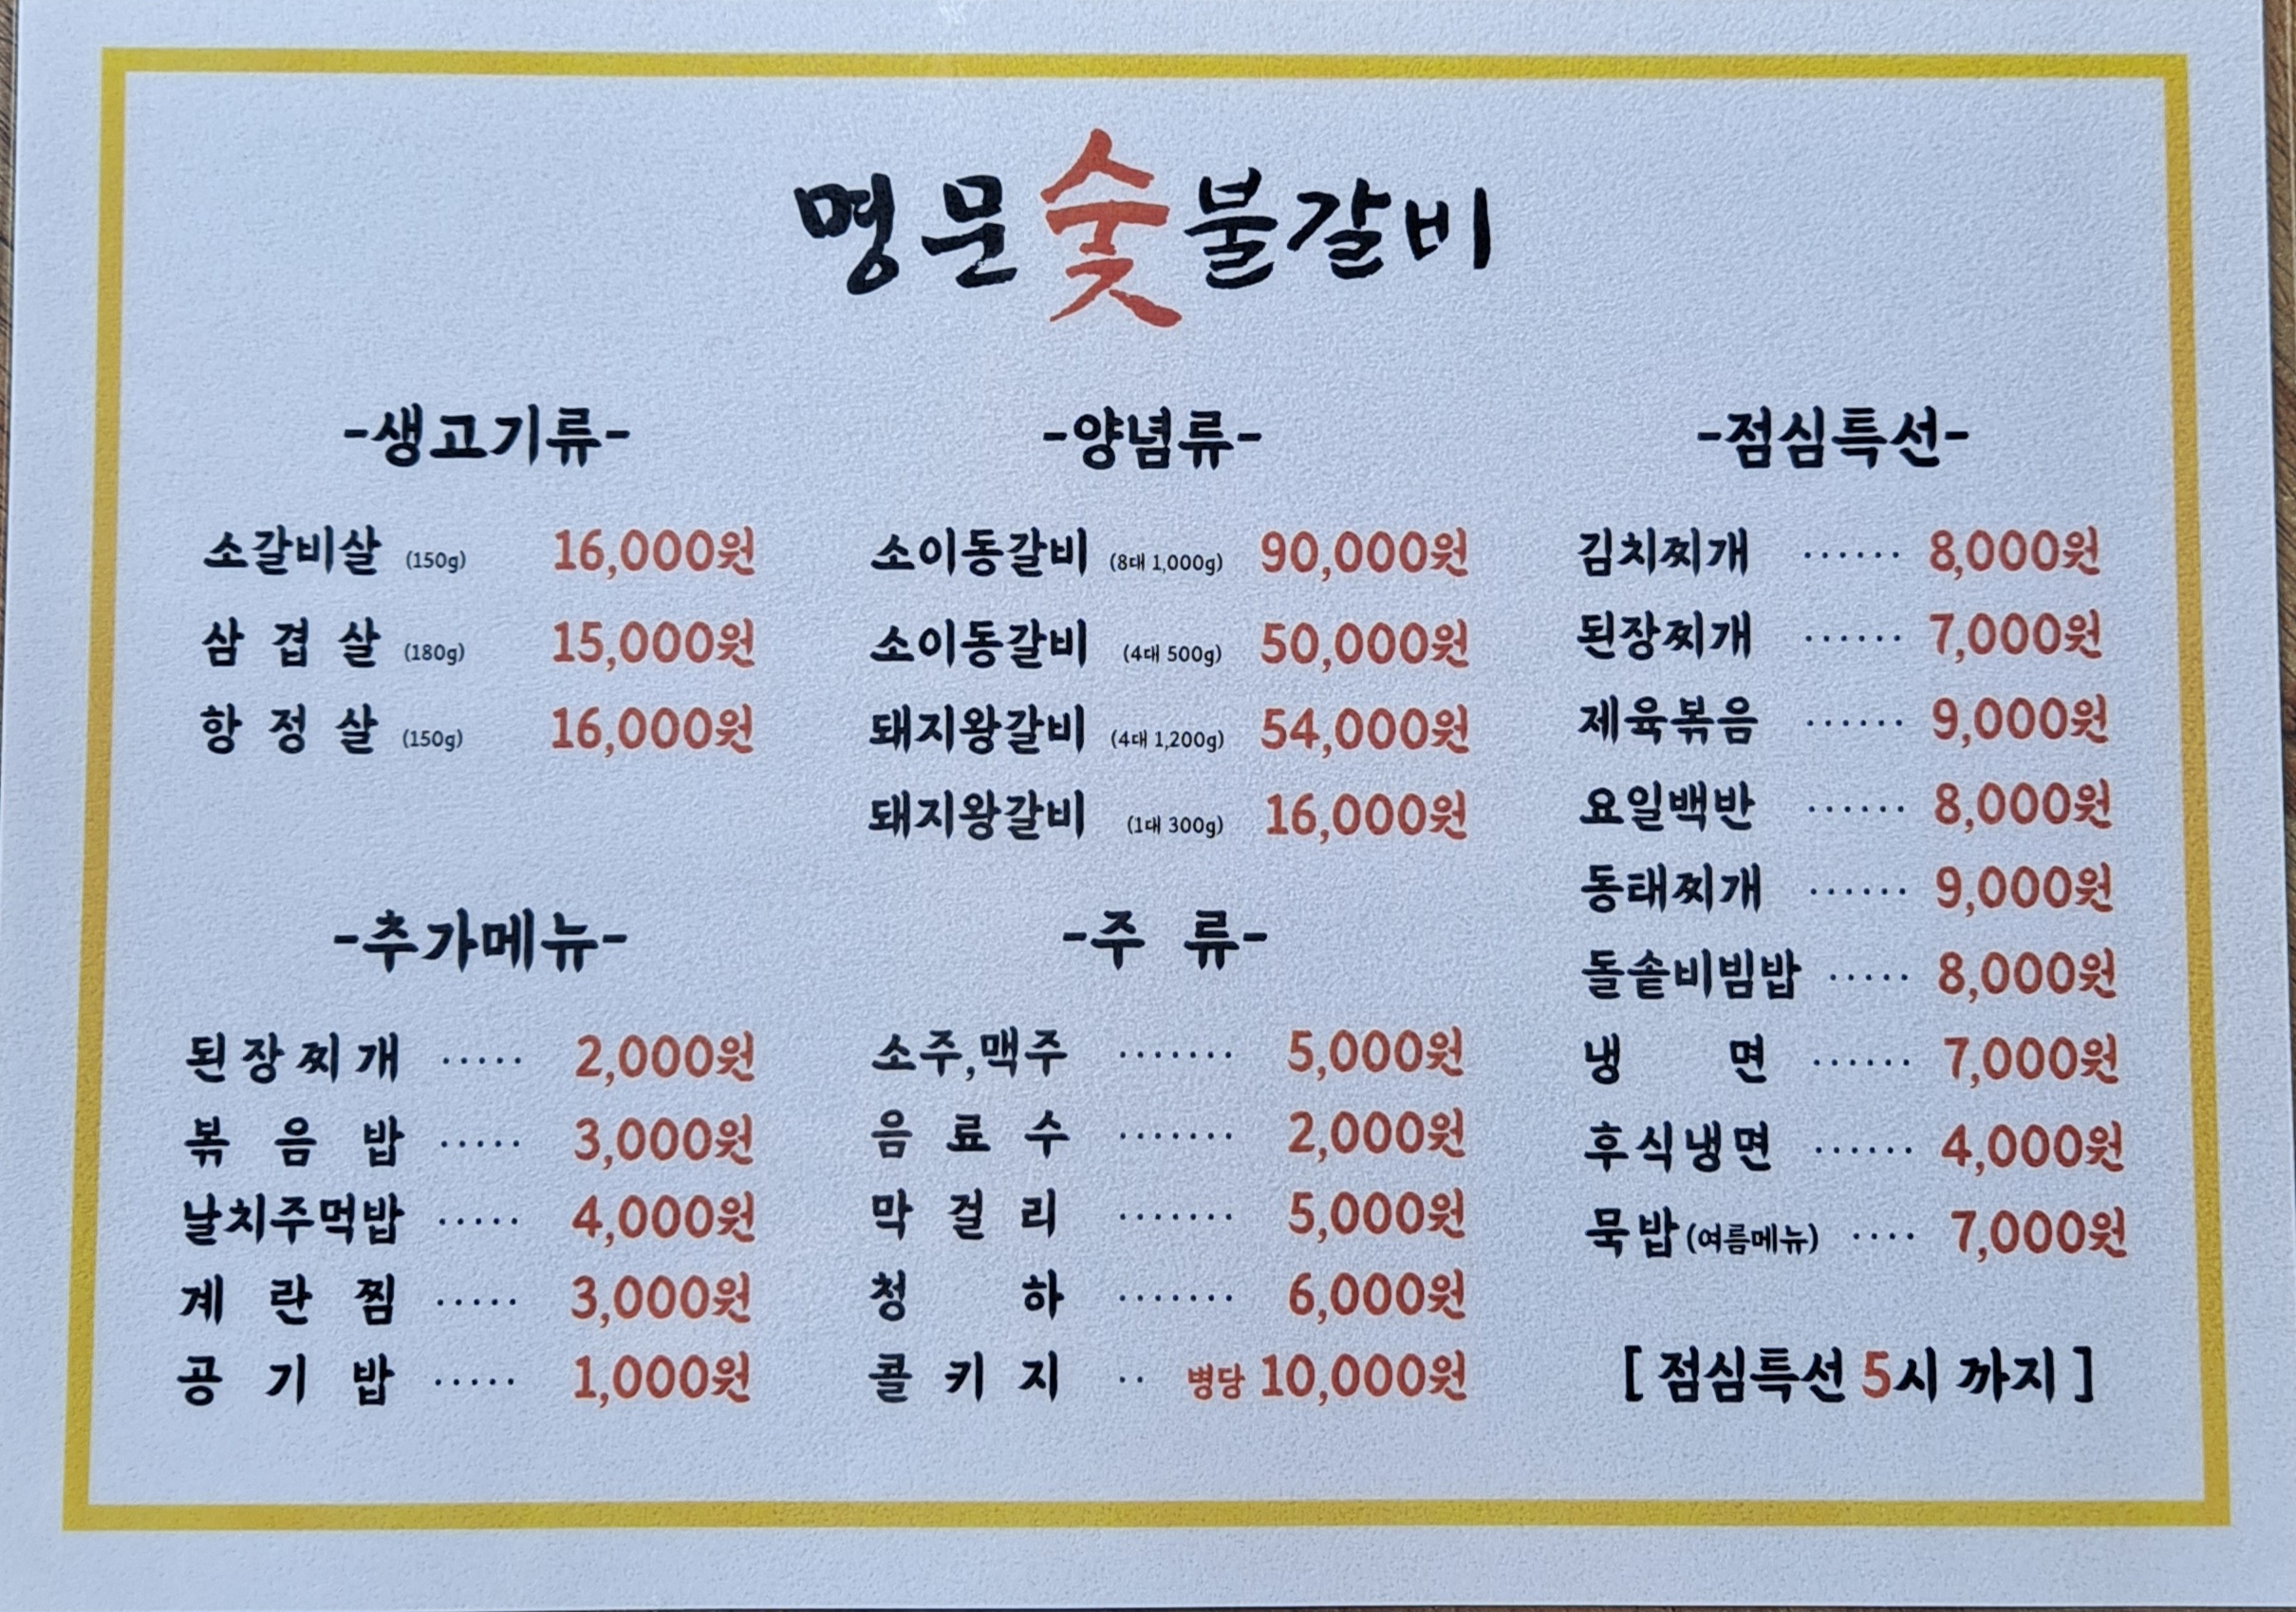 명문숯불갈비
-생고기류-
소갈비살 (150g) 16,000원
삼 겹 살 (180g) 15,000원
항 정 살 (150g) 16,000원
-양념류-
소이동갈비 (8대 1,000g) 90,000원
소이동갈비 (4대 500g) 50,000원
돼지왕갈비 (4대 1,200g) 54,000원
돼지왕갈비 (1대 300g) 16,000원
-점심특선-
김치찌개 ······ 8,000원
된장찌개 ······ 7,000원
제육볶음 ······ 9,000원
요일백반 ······ 8,000원
동태찌개 ······ 9,000원
돌솥비빔밥 ····· 8,000원
냉 면 ······ 7,000원
후식냉면 ······ 4,000원
묵밥(여름메뉴) ···· 7,000원
[ 점심특선 5시 까지 ]
-추가메뉴-
된장찌개 ····· 2,000원
볶 음 밥 ····· 3,000원
날치주먹밥 ····· 4,000원
계 란 찜 ····· 3,000원
공 기 밥 ····· 1,000원
-주 류-
소주,맥주 ······· 5,000원
음 료 수 ······· 2,000원
막 걸 리 ······· 5,000원
청 하 ······· 6,000원
콜 키 지 ·· 병당 10,000원